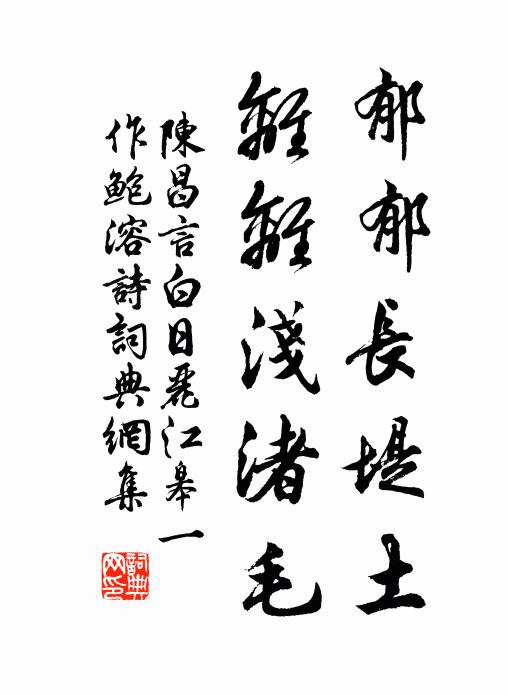 郁郁長堤土
離離淺渚毛
陳昌言白日麗江皋一
作鮑溶詩詞典網集
詞典網印